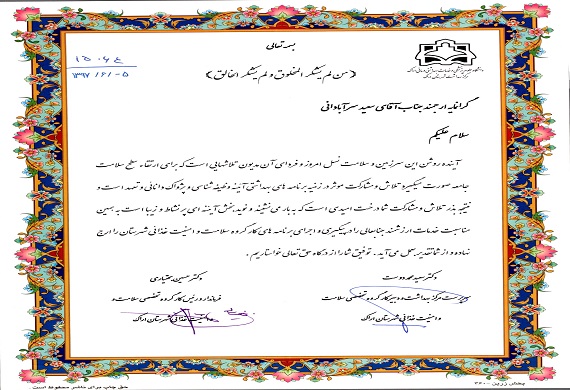 بسمه تعالی
۱۳۹۷/۶/۰۵
(من لم یشکر المخلوق و لم یشکر الخالق)
گرانمایه ارجمند جناب آقای سعید سرآبادانی
سلام علیکم
آینده روشن این سرزمین و سلامت نسل امروز و فردای آن مدیون تلاشهایی است که برای ارتقاء سطح سلامت
جامعه صورت میگیرد تلاش و مشارکت موثر در زمینه برنامه های بهداشتی آینه وظیفه شناسی و پژواک دانائی و تعهد است و
نتیجه بذر تلاش و مشارکت شما درخت امیدی است که به بار می نشیند و نوید بخش آینده ای پر نشاط و زیبا است به همین
مناسبت خدمات ارزشمند جنابعالی را در پیگیری و اجرای برنامه های کارگروه سلامت و امنیت غذایی شهرستان را ارج
نهاده و از شما تقدیر بعمل می آید. توفیق شما را از درگاه حق تعالی خواستاریم.
دکتر سید محمد دوست
سرپرست مرکز بهداشت و دبیر کارگروه تخصصی سلامت
و امنیت غذائی شهرستان اراک
دکتر حسین بختیاری
فرماندار و رئیس کارگروه تخصصی سلامت و
امنیت غذائی شهرستان اراک
پخش زرین - ۲۶۰
حق چاپ برای ناشر محفوظ است